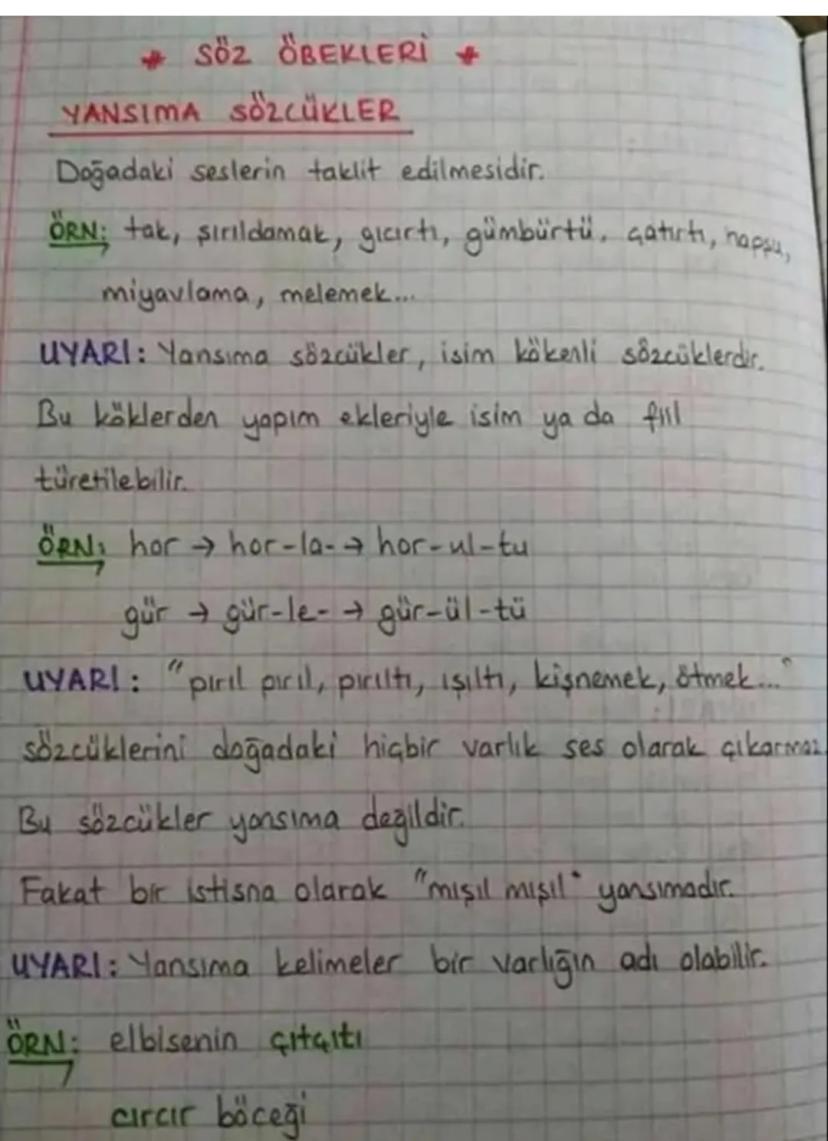 * SÖZ ÖBEKLERİ *
YANSIMA SÖZCÜKLER
Doğadaki seslerin taklit edilmesidir.
ÖRN: tak, şırıldamak, gıcırtı, gümbürtü, çatırtı, hapşu,
miyavlama, melemek...
UYARI: Yansıma sözcükler, isim kökenli sözcüklerdir.
Bu köklerden yapım ekleriyle isim ya da fiil
türetilebilir.
ÖRN: hor → hor-la- → hor-ul-tu
gür → gür-le- → gür-ül-tü
UYARI: "pırıl pırıl, pırıltı, ışıltı, kişnemek, ötmek..."
sözcüklerini doğadaki hiçbir varlık ses olarak çıkarmaz.
Bu sözcükler yansıma değildir.
Fakat bir istisna olarak "mışıl mışıl" yansımadır.
UYARI: Yansıma kelimeler bir varlığın adı olabilir.
ÖRN: elbisenin çıtçıtı
cırcır böceği